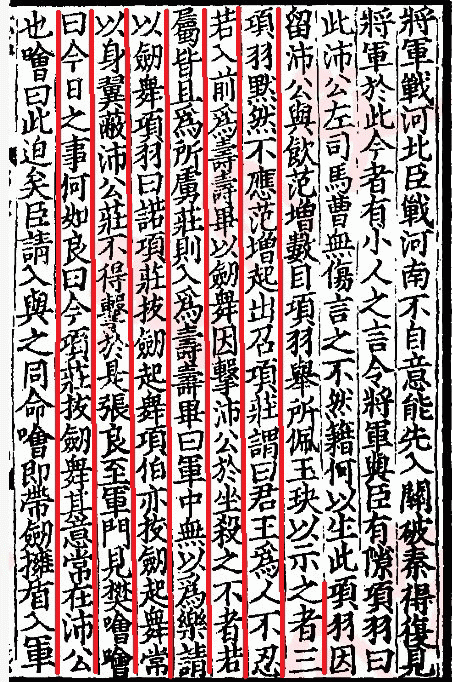 將軍戰河北臣戰河南不自意能先入關破秦得復見
將軍於此今者有小人之言令將軍與臣有隙項羽曰
此沛公左司馬曹無傷言之不然籍何以生此項羽因
留沛公與飲范增數目項羽舉所佩玉玦以示之者三
項羽默然不應范增起出召項莊謂曰君王爲人不忍
若入前爲壽壽畢以劒舞因擊沛公於坐殺之不者若
屬皆且爲所虜莊則入爲壽壽畢曰軍中無以爲樂請
以劒舞項羽曰諾項莊拔劒起舞項伯亦拔劒起舞常
以身翼蔽沛公莊不得擊於是張良至軍門見樊噲噲
曰今日之事何如良曰今項莊拔劒舞其意常在沛公
也噲曰此迫矣臣請入與之同命噲即帶劒擁盾入軍